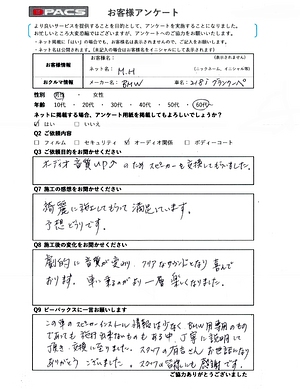 PACS お客様アンケート
より良いサービスを提供することを目的として、アンケートを実施することになりました。
お忙しいところ大変恐縮ではございますが、アンケートへのご協力をお願いいたします。
お客様情報
お客様名：
（表示されません）
ネット名： M.H
（ニックネーム、イニシャル等）
おクルマ情報
メーカー名： BMW
車名： 218i グランクーペ
性別 男性 ・ 女性
年齢 10代 ・ 20代 ・ 30代 ・ 40代 ・ 50代 ・ 60代
ネットに掲載する場合、アンケート用紙を掲載してもよろしいでしょうか？
☑ はい □ いいえ
Q2 ご依頼内容
□ フィルム □ セキュリティ ☑ オーディオ関係 □ ボディーコート
Q3 ご依頼目的をお聞かせください
オーディオ音質UPのためスピーカーを交換してもらいました。
Q7 施工の感想をお聞かせください
綺麗に施工してもらって満足しています。
予想どうりです。
Q8 施工後の変化をお聞かせください
劇的に音質が変わり、クリアなサウンドとなり喜んで
おります。車に乗るのがより一層楽しくなりました。
Q9 ピーパックスに一言お願いします
この車のスピーカーインストール情報は少なく、BMW用専用のもの
であっても
丁寧に説明して
頂き、交換に至りました。スタッフの
お世話になり
ありがとうございました。スタッフの皆様にも感謝です。
ご協力ありがとうございました